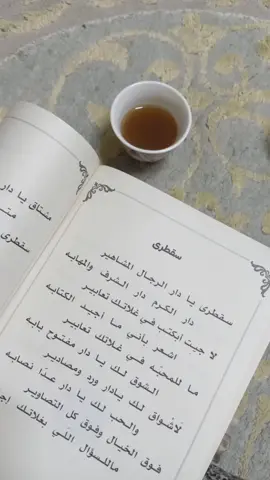 مشتاق يا دار
سقطرى
سقطرى
سقطرى يا دار الرجال المشاهير
دار الكرم دار الشرف والمهابه
لا جيت أبكتب في غلاتك تعابير
اشعر بأني ما أجيب الكتابه
ما للمحبّه في غلاتك تعابير
الشوق لك يا دار مفتوح بابه
لاشواق لك يادار ورد ومصادير
والحب لك يا دار عدّا نصابه
فوق الخيال وفوق كل التصاوير
ماللسؤال اللي بغلاتك